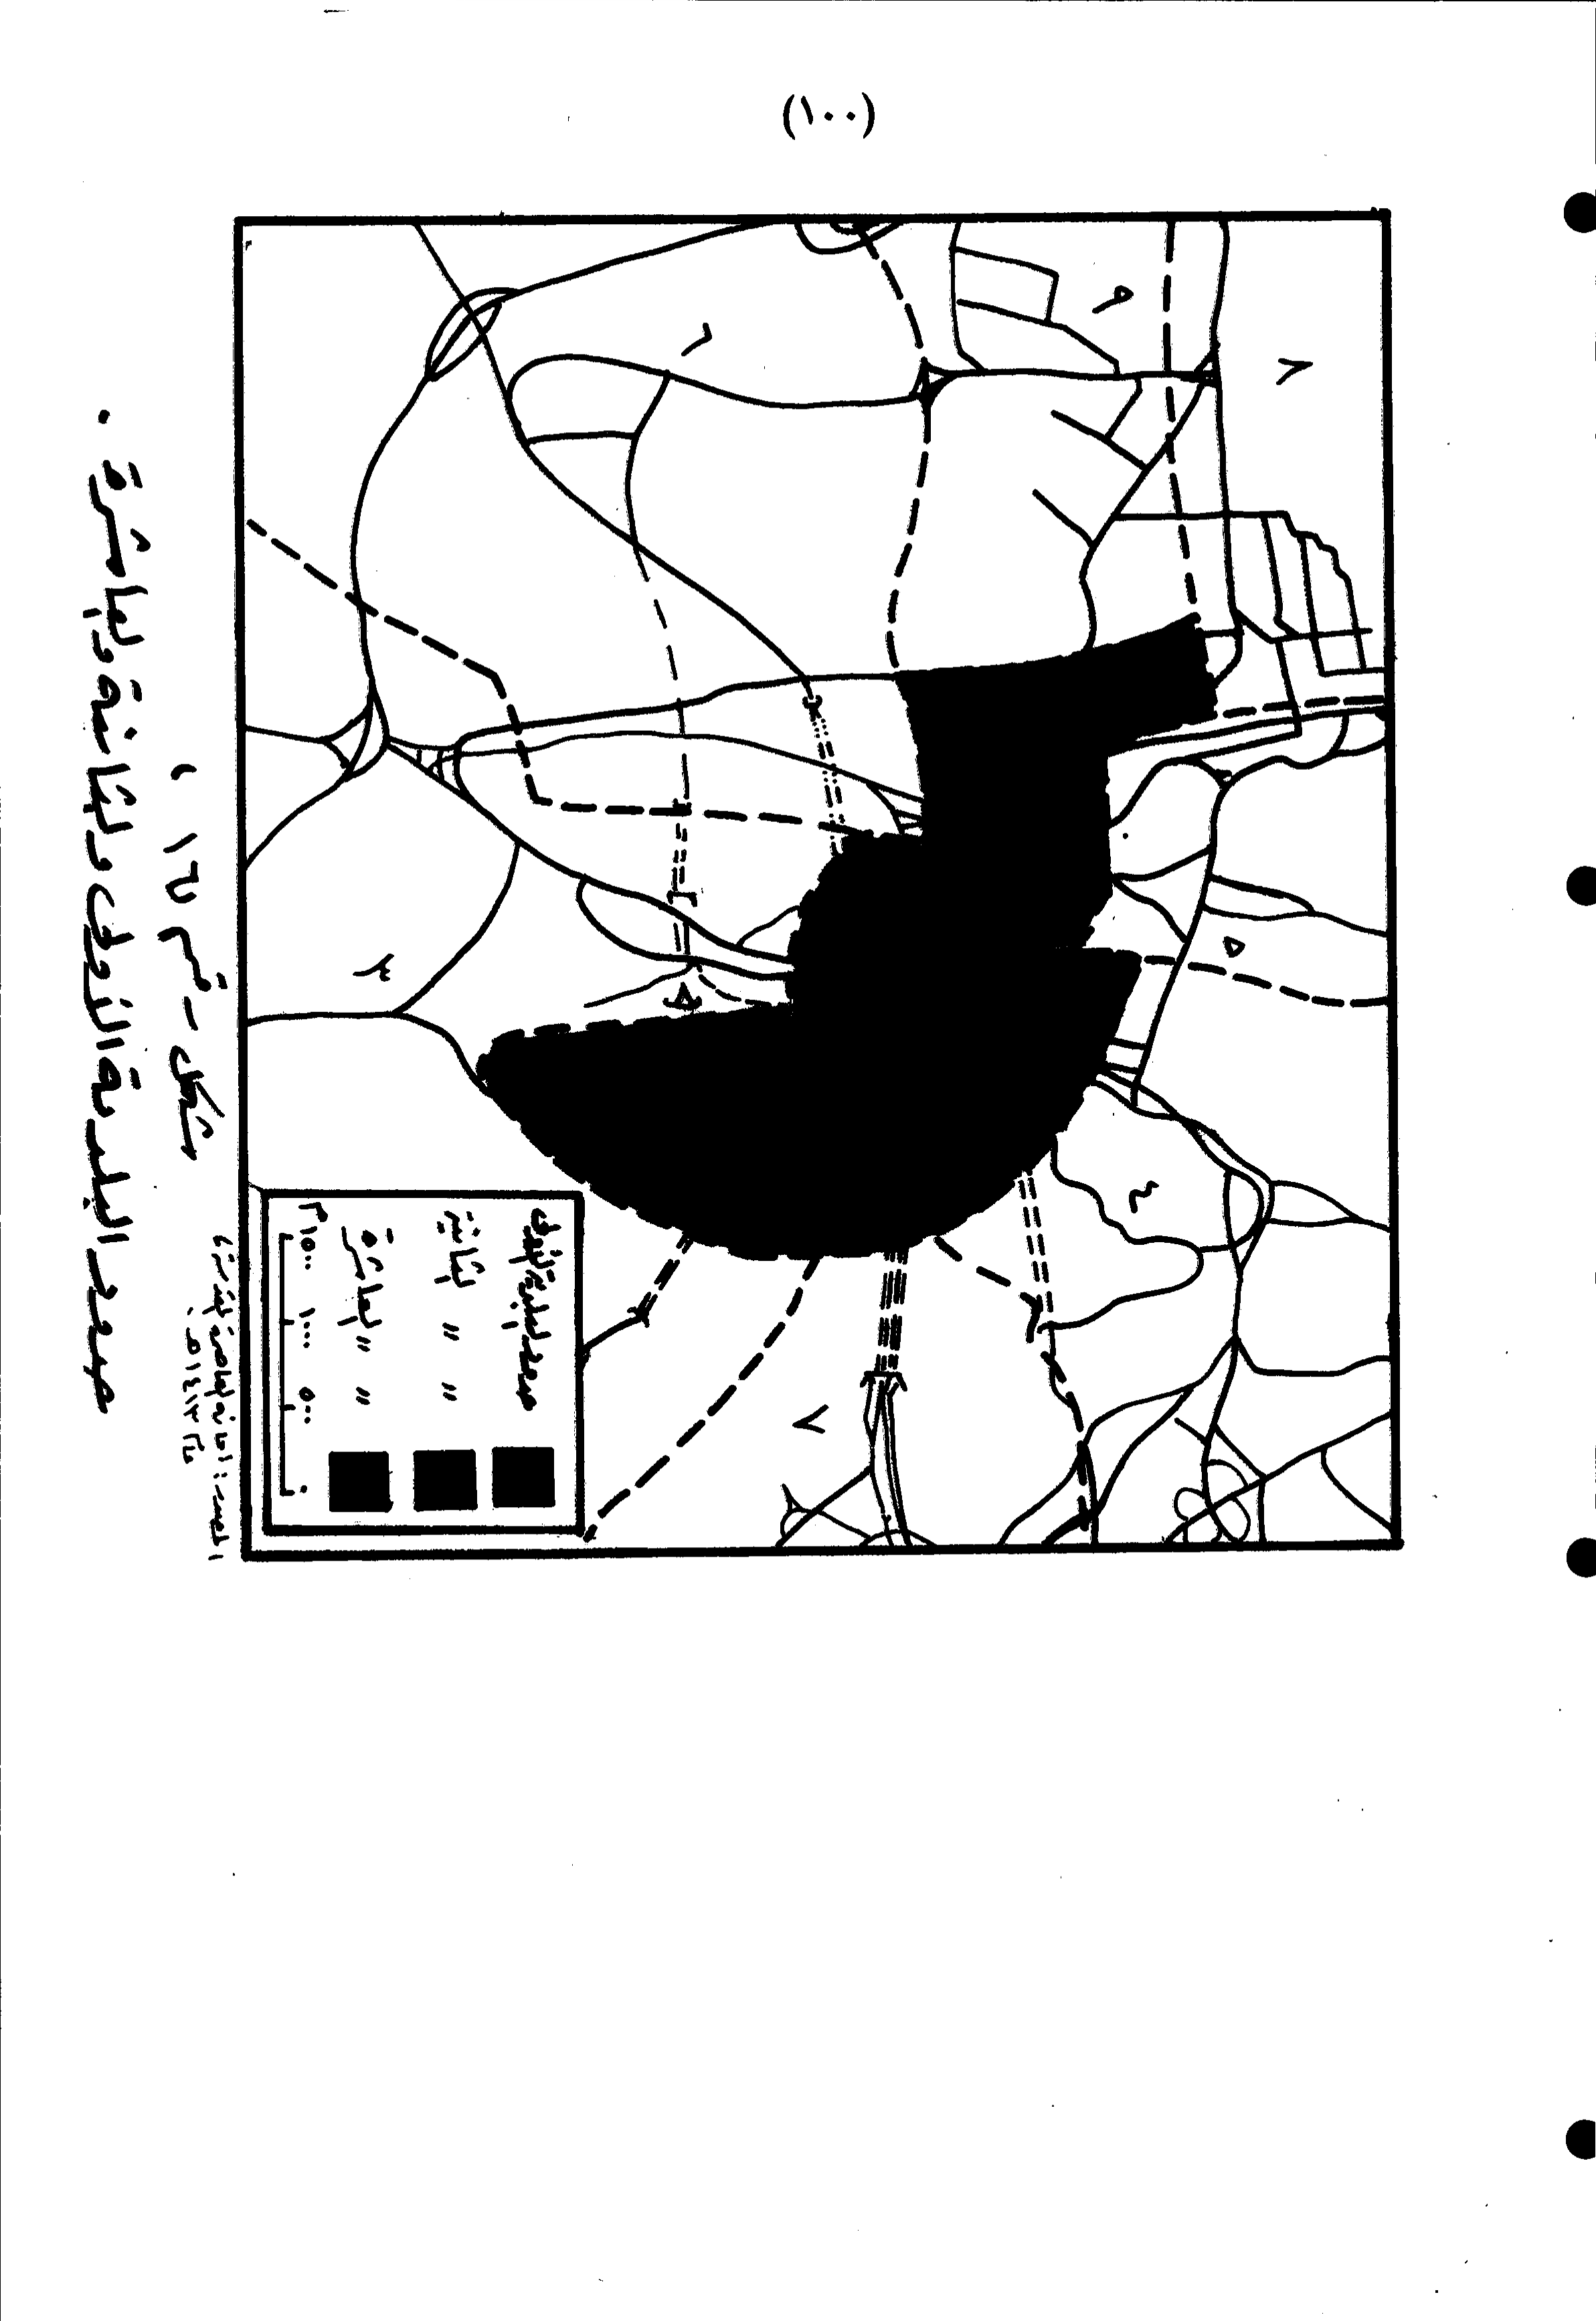 (١٠٠)
٩
٨
٦
٥
٣
٤
٧
حدود البلدية الأولى
" " الثانية
" " العاشرة
٠ ٥٠٠ ١٠٠٠ ١٥٠٠م
المصدر : أمانة العاصمة المقدسة
عام ١٤١٣هـ
شكل رقم ١٦
حدود البلدية الأولى والثانية والعاشرة .